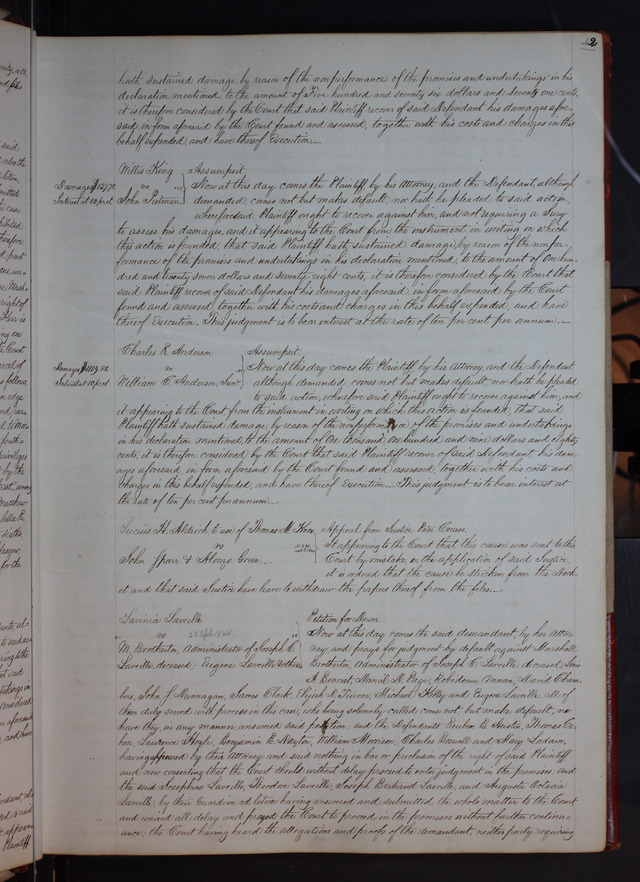 42
hath sustained damage, by reason of the nonperformance of the promises and undertakings in his
declaration mentioned to the amount of Five hundred and seventy six dollars and seventy one cents,
it is therefore considered by the Court that said Plaintiff recover of said Defendant his damages afore-
said, in form aforesaid by the Court found and assessed, together with his costs and charges in this
behalf expended, and have thereof Execution.
Willis King Assumpsit,
vs Now at this day comes the Plaintiff by his Attorney, and the Defendant, although
Damages $127.78
Interest at 10 pr ct
John Pulman demanded comes not but makes default, nor hath he pleaded to said action,
wherefore said Plaintiff ought to recover against him, and not requiring a Jury
to assess his damages, and it appearing to the Court from the instrument in writing on which
this action is founded, that said Plaintiff hath sustained damage, by reason of the nonper-
formance of the promises and undertakings in his declaration mentioned, to the amount of One hun-
dred and twenty seven dollars and seventy eight cents, it is therefore considered by the Court that
said Plaintiff recover of said Defendant his damages aforesaid, in form aforesaid by the Court
found and assessed, together with his costs and charges in this behalf expended, and have
thereof Execution. This judgment is to bear interest at the rate of ten per cent per annum.
Charles R. Anderson Assumpsit.
Damages $1109.80
Interest at 10 pr ct
vs Now at this day comes the Plaintiff, by his Attorney, and the Defendant
William C. Anderson, although demanded, comes not but makes default, nor hath he pleaded
to said action, wherefore said Plaintiff ought to recover against him, and
it appearing to the Court from the instrument in writing on which this action is founded, that said
Plaintiff hath sustained damage, by reason of the nonperformance of the promises and undertakings
in his declaration mentioned, to the amount of One thousand, one hundred and nine dollars and eighty
cents, it is therefore considered by the Court that said Plaintiff recover of said Defendant his dam-
ages aforesaid, in form aforesaid by the Court found and assessed, together with his costs and
charges in this behalf expended, and have thereof Execution. This judgment is to bear interest at
the rate of ten per cent per annum.
Lucius H. Aldrich to use of Thomas M. Knox Appeal from Justice Peter
vs It appearing to the Court that this cause was sent to this
John Sparr & Alonzo Court by mistake, on the application of said Justice,
it is ordered that the cause be stricken from the Dock-
et and that said Justice have leave to withdraw the papers thereof from the files.
Lavinia Laveille Petition for Dower.
vs Now at this day comes the said demandant, by her Attor-
M. Brotherton, Administrator of Joseph C. ney and prays for judgment by default against Marshall
Laveille, deceased, Eugene Laveille & others Brotherton, Administrator of Joseph C. Laveille, deceased, Louis
A. Benoist, Daniel D. Page, Robideau Annan, David Cham-
bers, John J. Munnagan, James Clark, Elijah D. Turner, Michael Kelly and Eugene Laveille, all of
them duly served with process in the case, who being solemnly called come not, but make default, nor
have they in any manner answered said petition; and the Defendants Reuben B. Austin, Thomas
Lawrence Benjamin R. Dayton, William Morrison, Charles and Mary
having appeared by their Attorney and said nothing in bar or preclusion of the right of said Plaintiff
and now consenting that the Court should without delay proceed to enter judgment in the premises, and
the said Josephine Laveille, Theodore Laveille, Joseph Bertrand Laveille, and Augusta Octavia
Laveille, by their Guardian ad litem having answered and submitted the whole matter to the Court
and waived all delay and prayed the Court to proceed in the premises without further continu-
ance; the Court having heard the allegations and proofs of the demandant, neither party requiring